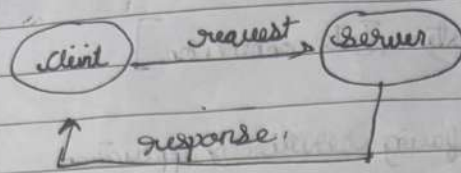 client
request
server
response.